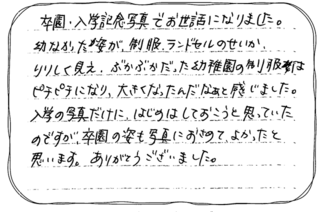 卒園・入学記念写真でお世話になりました。
幼なかった姿が、制服、ランドセルのせいか、
りりしく見え、ぶかぶかだった幼稚園の制服は
ピチピチになり、大きくなったんだなぁと感じました。
入学の写真だけに、はじめはしておこうと思っていた
のですが、卒園の姿も写真におさめて、よかったと
思います。ありがとうございました。